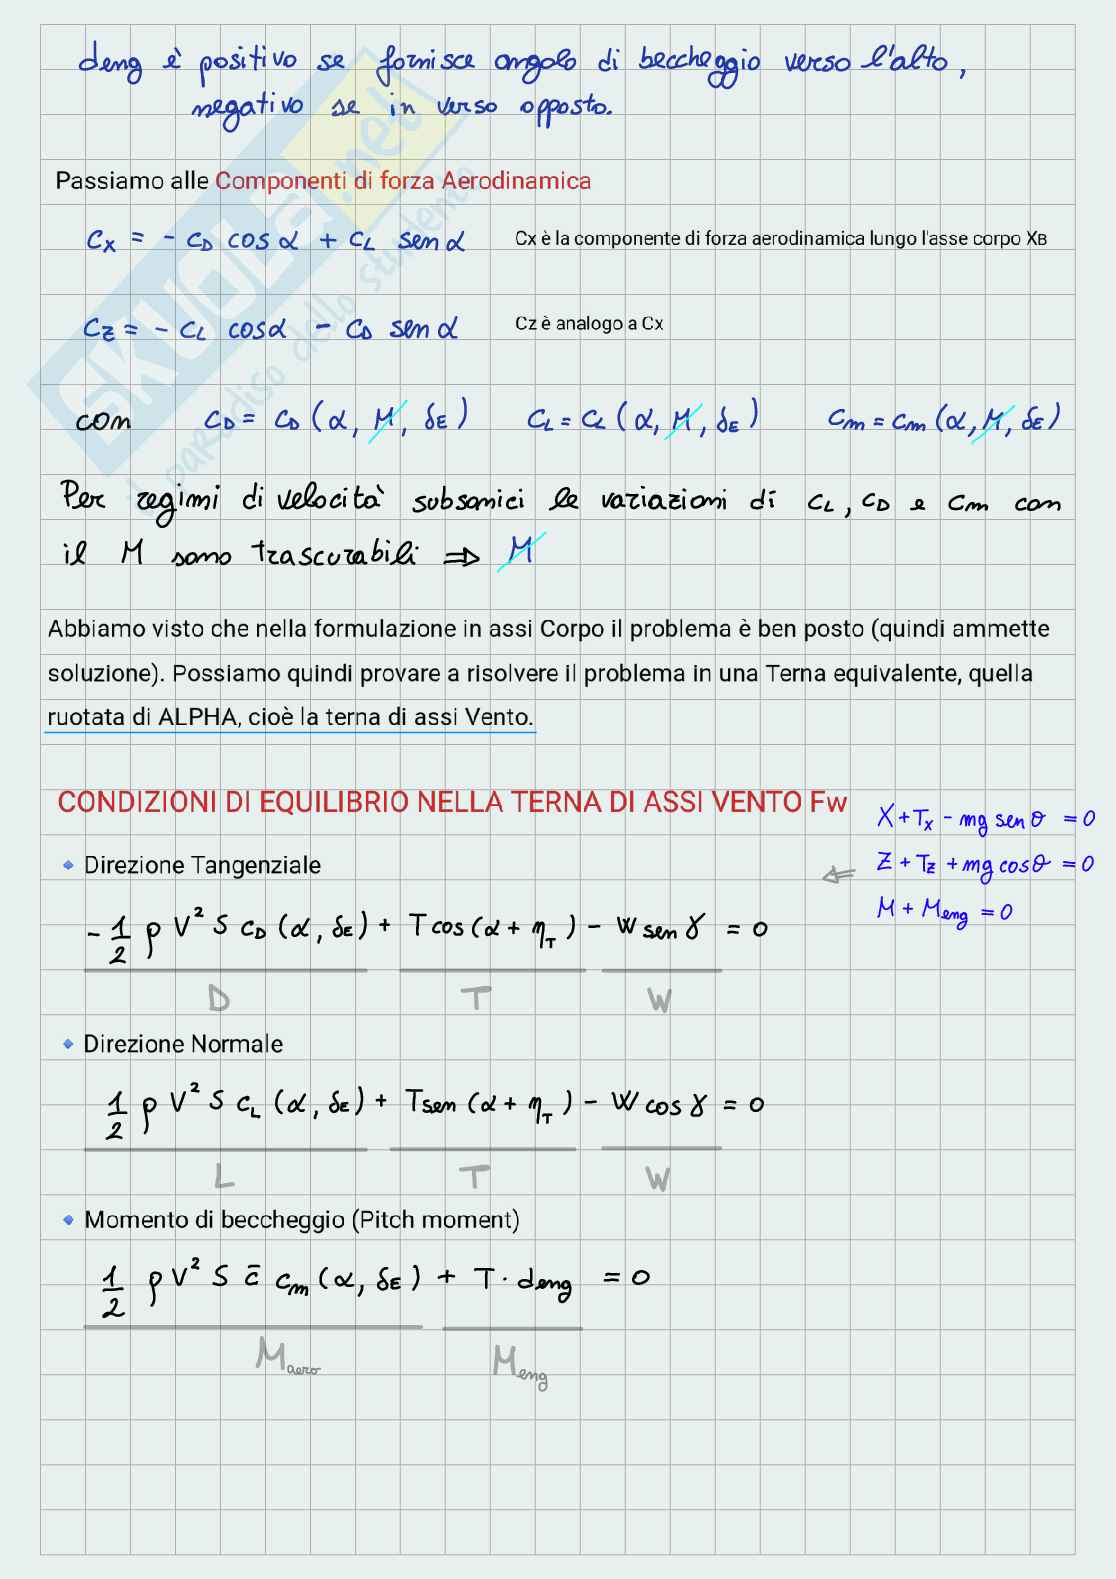 deng è positivo se fornisce angolo di beccheggio verso l'alto,
negativo se in verso opposto.
Passiamo alle Componenti di forza Aerodinamica
Cx = - CD cos α + CL sen α
Cx è la componente di forza aerodinamica lungo l'asse corpo XB
Cz = - CL cos α - CD sen α
Cz è analogo a Cx
con CD = CD (α, M, δE) CL = CL (α, M, δE) Cm = Cm (α, M, δE)
Per regimi di velocità subsonici le variazioni di CL, CD e Cm con
il M sono trascurabili ⇒ M
Abbiamo visto che nella formulazione in assi Corpo il problema è ben posto (quindi ammette
soluzione). Possiamo quindi provare a risolvere il problema in una Terna equivalente, quella
ruotata di ALPHA, cioè la terna di assi Vento.
CONDIZIONI DI EQUILIBRIO NELLA TERNA DI ASSI VENTO Fw
X + Tx - mg sen θ = 0
Z + Tz + mg cos θ = 0
M + Meng = 0
Direzione Tangenziale
- 1/2 ρ V² S CD (α, δE) + T cos (α + ηT) - W sen γ = 0
D T W
Direzione Normale
1/2 ρ V² S CL (α, δE) + T sen (α + ηT) - W cos γ = 0
L T W
Momento di beccheggio (Pitch moment)
1/2 ρ V² S c̄ Cm (α, δE) + T · deng = 0
Maero Meng
SKUOLA.net
il paradiso dello studente